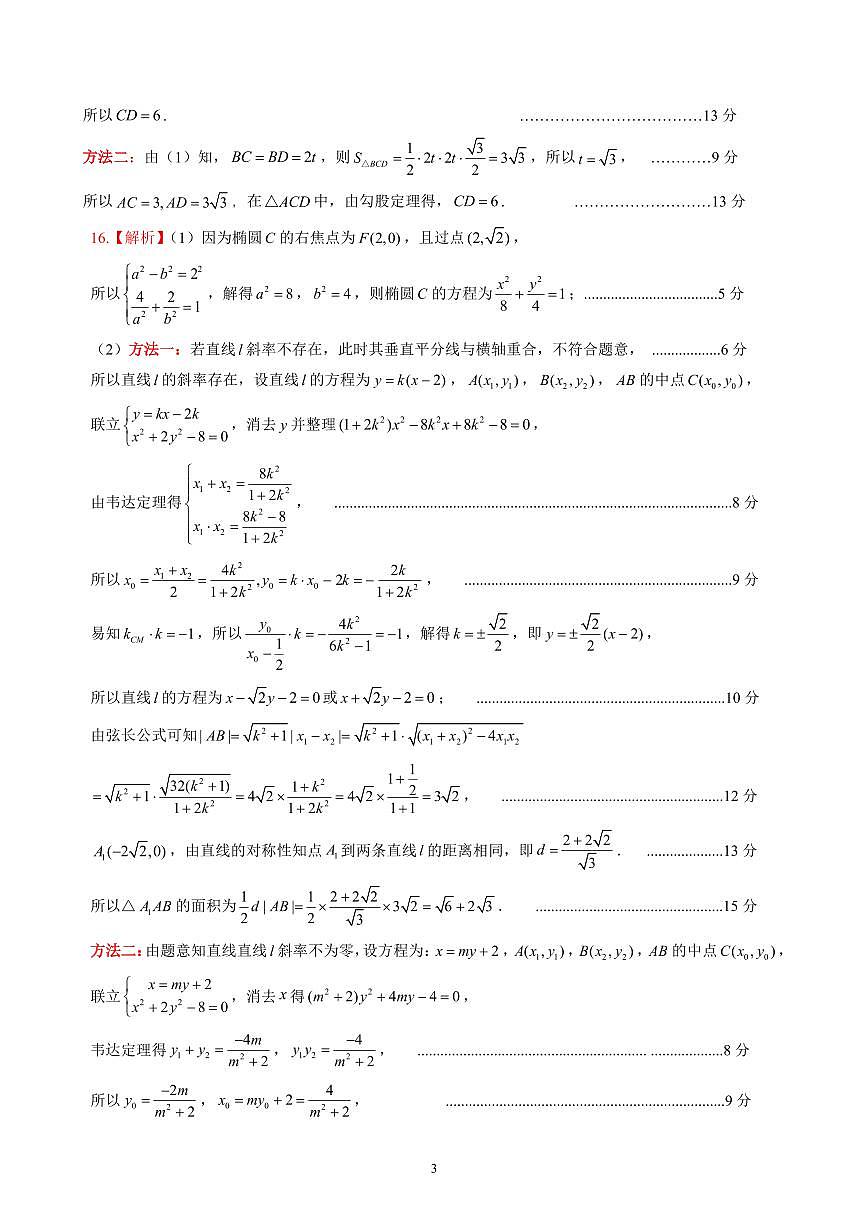 所以 CD = 6 . ………………………………13 分
方法二：由（1）知， BC = BD = 2t ，则 S△BCD = 1/2 · 2t · 2t · √3/2 = 3√3 ，所以 t = √3 ， …………9 分
所以 AC = 3, AD = 3√3 . 在 △ACD 中，由勾股定理得，CD = 6 . ………………………13 分
16.【解析】（1）因为椭圆 C 的右焦点为 F(2,0) ，且过点 (2, √2) ，
所以 { a² − b² = 2² ; 4/a² + 2/b² = 1 ，解得 a² = 8 ， b² = 4 ，则椭圆 C 的方程为 x²/8 + y²/4 = 1 ；...................................5 分
（2）方法一：若直线 l 斜率不存在，此时其垂直平分线与横轴重合，不符合题意， ..................6 分
所以直线 l 的斜率存在，设直线 l 的方程为 y = k(x − 2) ， A(x₁, y₁) ， B(x₂, y₂) ， AB 的中点 C(x₀, y₀) ，
联立 { y = kx − 2k ; x² + 2y² − 8 = 0 ，消去 y 并整理 (1 + 2k²)x² − 8k²x + 8k² − 8 = 0 ，
由韦达定理得 { x₁ + x₂ = 8k²/(1 + 2k²) ; x₁ · x₂ = (8k² − 8)/(1 + 2k²) ， ........................................................................................................8 分
所以 x₀ = (x₁ + x₂)/2 = 4k²/(1 + 2k²) , y₀ = k · x₀ − 2k = − 2k/(1 + 2k²) ， ......................................................................9 分
易知 k_CM · k = −1 ，所以 y₀/(x₀ − 1/2) · k = − 4k²/(6k² − 1) = −1 ，解得 k = ± √2/2 ，即 y = ± √2/2 (x − 2) ，
所以直线 l 的方程为 x − √2y − 2 = 0 或 x + √2y − 2 = 0 ； .................................................................10 分
由弦长公式可知 | AB |= √(k² + 1) | x₁ − x₂ |= √(k² + 1) · √((x₁ + x₂)² − 4x₁x₂)
= √(k² + 1) · √(32(k² + 1))/(1 + 2k²) = 4√2 × (1 + k²)/(1 + 2k²) = 4√2 × (1 + 1/2)/(1 + 1) = 3√2 ， ..........................................................12 分
A₁(−2√2, 0) ，由直线的对称性知点 A₁ 到两条直线 l 的距离相同，即 d = (2 + 2√2)/√3 . ....................13 分
所以△ A₁AB 的面积为 1/2 d | AB |= 1/2 × (2 + 2√2)/√3 × 3√2 = √6 + 2√3 . .................................................15 分
方法二：由题意知直线直线 l 斜率不为零，设方程为：x = my + 2 ，A(x₁, y₁) ，B(x₂, y₂) ，AB 的中点 C(x₀, y₀) ，
联立 { x = my + 2 ; x² + 2y² − 8 = 0 ，消去 x 得 (m² + 2)y² + 4my − 4 = 0 ，
韦达定理得 y₁ + y₂ = −4m/(m² + 2) ， y₁y₂ = −4/(m² + 2) ， ............................................................ ...................8 分
所以 y₀ = −2m/(m² + 2) ， x₀ = my₀ + 2 = 4/(m² + 2) ， .........................................................................9 分
3